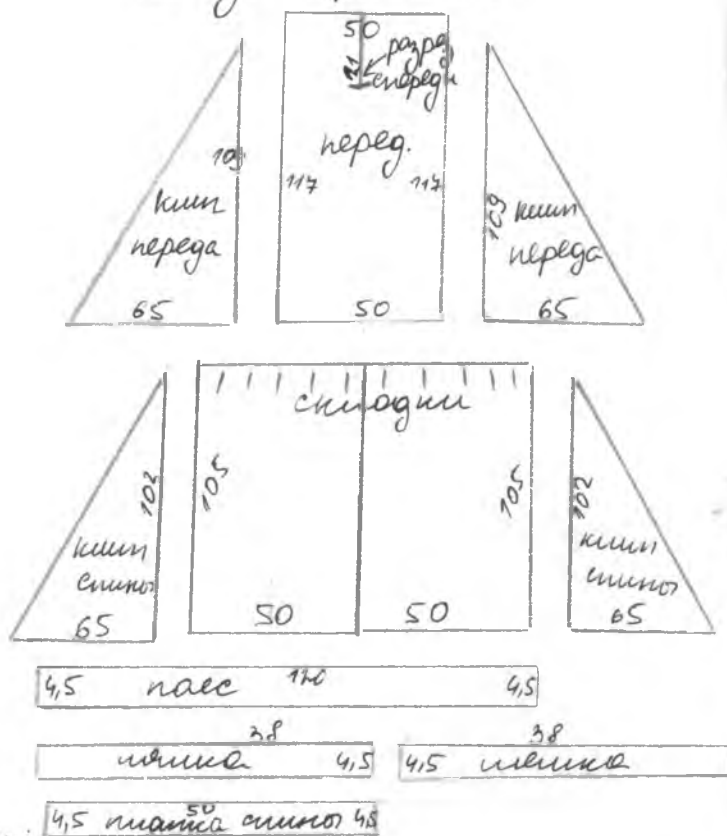 50
разрез
спереди
21
перед.
109
117
117
109
клин
переда
клин
переда
65
50
65
складки
102
105
105
102
клин
спины
клин
спины
65
50
50
65
4,5 пояс 120 4,5
38
лямка 4,5
38
4,5 лямка
50
4,5 планка спины 4,5